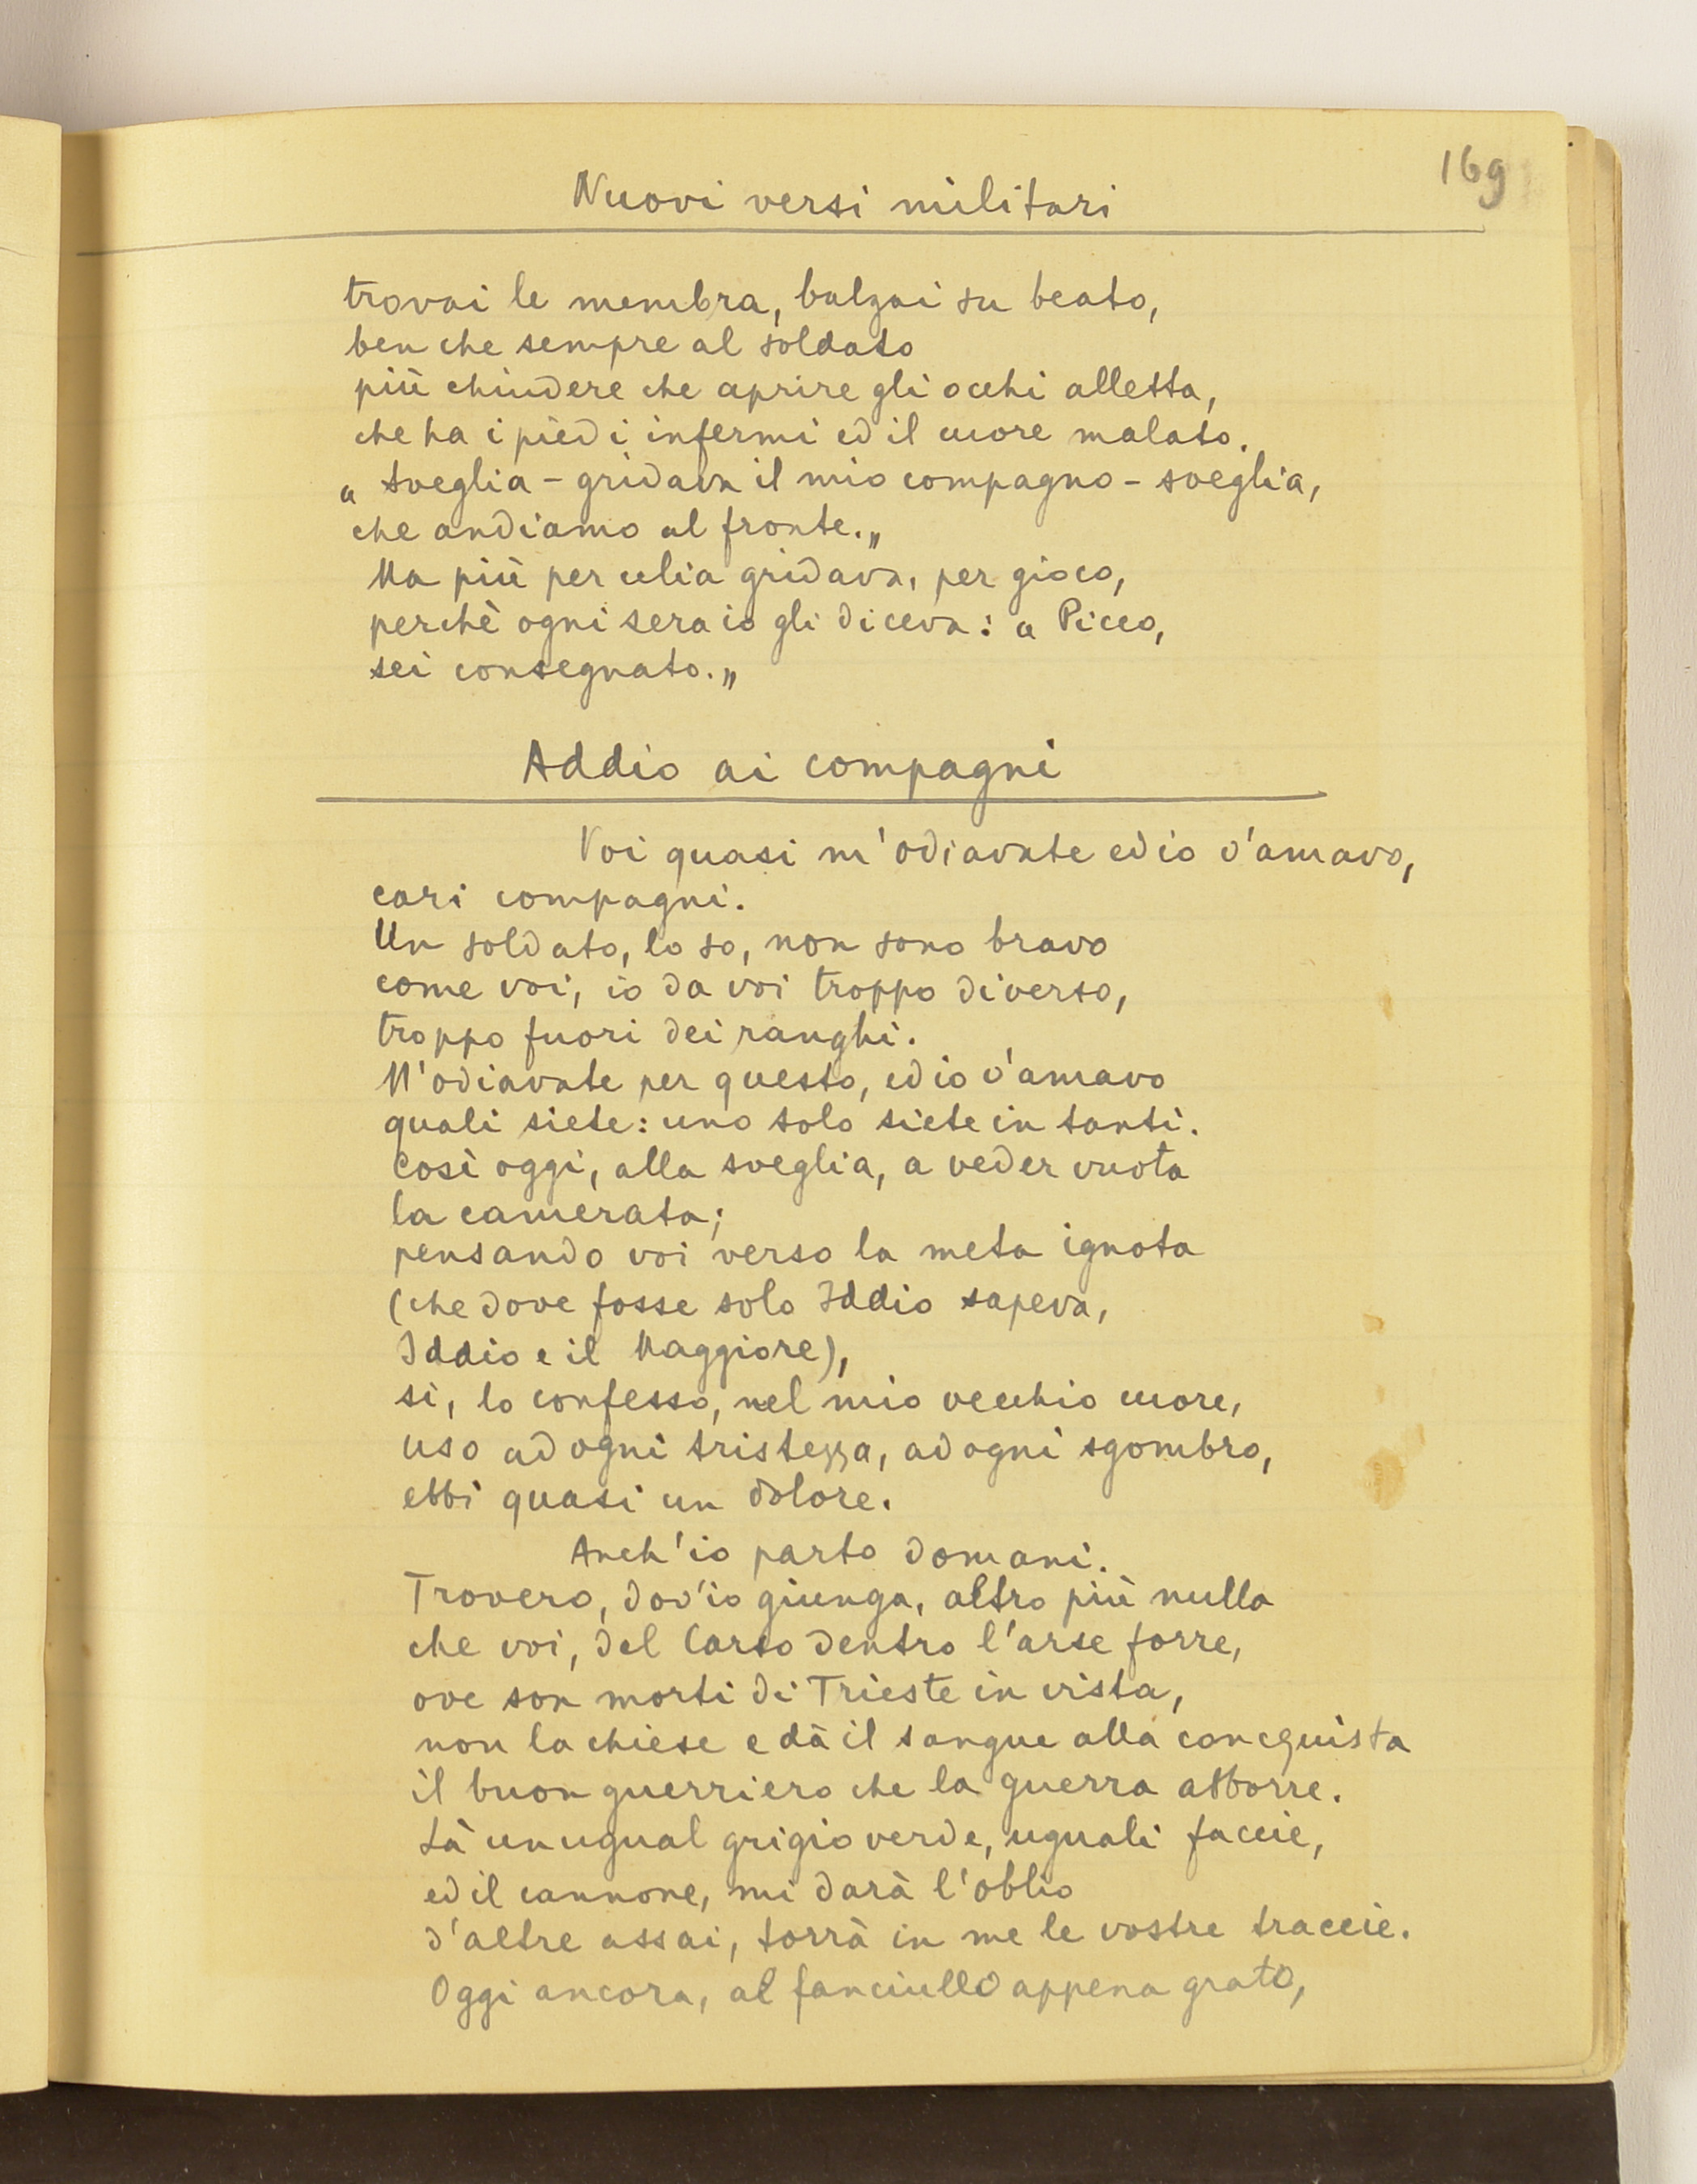 169
Nuovi versi militari
trovai le membra, balzai su beato,
ben che sempre al soldato
più chiudere che aprire gli occhi alletta,
che ha i piedi infermi ed il cuore malato.
„ Sveglia - gridava il mio compagno - sveglia,
che andiamo al fronte.„
Ma più per celia gridava, per gioco,
perchè ogni sera io gli diceva: „ Picco,
sei consegnato.„
Addio ai compagni
Voi quasi m'odiavate ed io v'amavo,
cari compagni.
Un soldato, lo so, non sono bravo
come voi, io da voi troppo diverso,
troppo fuori dei ranghi.
M'odiavate per questo, ed io v'amavo
quali siete: uno solo siete in tanti.
Così oggi, alla sveglia, a veder vuota
la camerata;
pensando voi verso la meta ignota
(che dove fosse solo Iddio sapeva,
Iddio e il Maggiore),
sì, lo confesso, nel mio vecchio cuore,
uso ad ogni tristezza, ad ogni sgombro,
ebbi quasi un dolore.
Anch'io parto domani.
Trovero, dov'io giunga, altro più nulla
che voi, del Carso dentro l'arse forre,
ove son morti di Trieste in vista,
non la chiese e dà il sangue alla concquista
il buon guerriero che la guerra abborre.
Là un ugual grigio verde, uguali faccie,
ed il cannone, mi darà l'oblio
d'altre assai, torrà in me le vostre traccie.
Oggi ancora, al fanciullo appena grato,